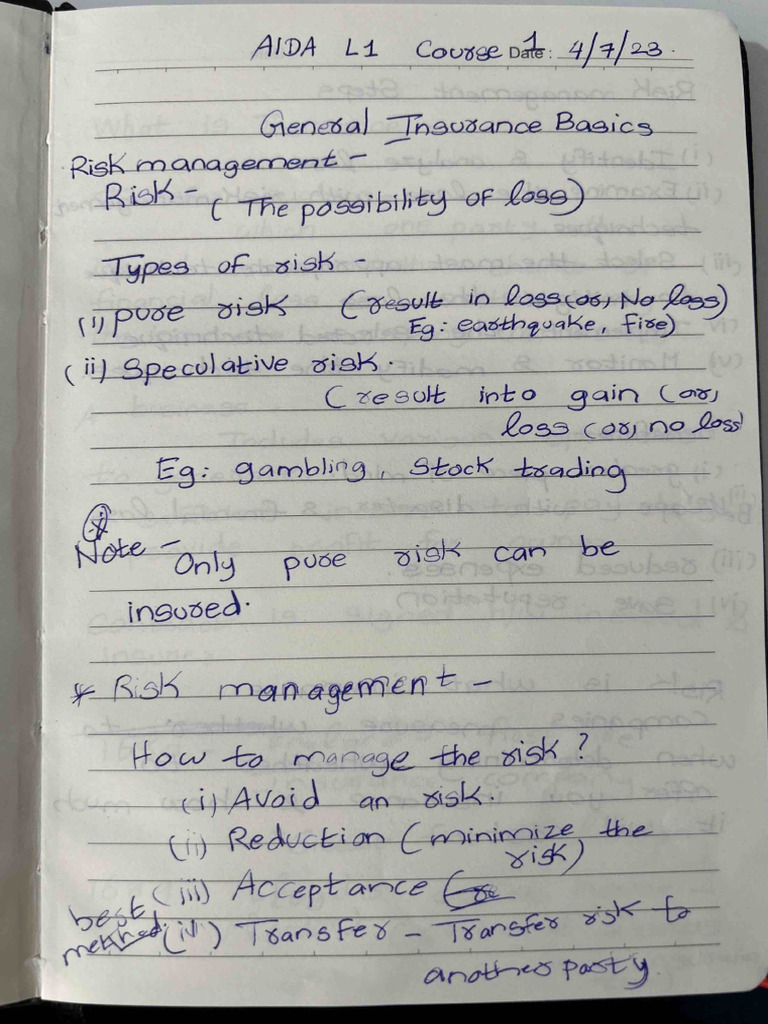 AIDA L1 Course 1 Date: 4/7/23.
General Insurance Basics
Risk management -
Risk - (The possibility of loss)
Types of risk -
(i) pure risk (result in loss (or) No loss)
Eg: earthquake, fire)
(ii) Speculative risk.
(result into gain (or)
loss (or) no loss
Eg: gambling, stock trading
*
Note - Only pure risk can be
insured.
* Risk management -
How to manage the risk?
(i) Avoid an risk.
(ii) Reduction (minimize the
risk)
(iii) Acceptance
best
method (iv) Transfer - Transfer risk to
another party.